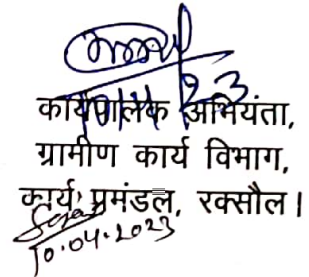 10/4/23
कार्यपालक अभियंता,
ग्रामीण कार्य विभाग,
कार्य प्रमंडल, रक्सौल।
10.04.2023